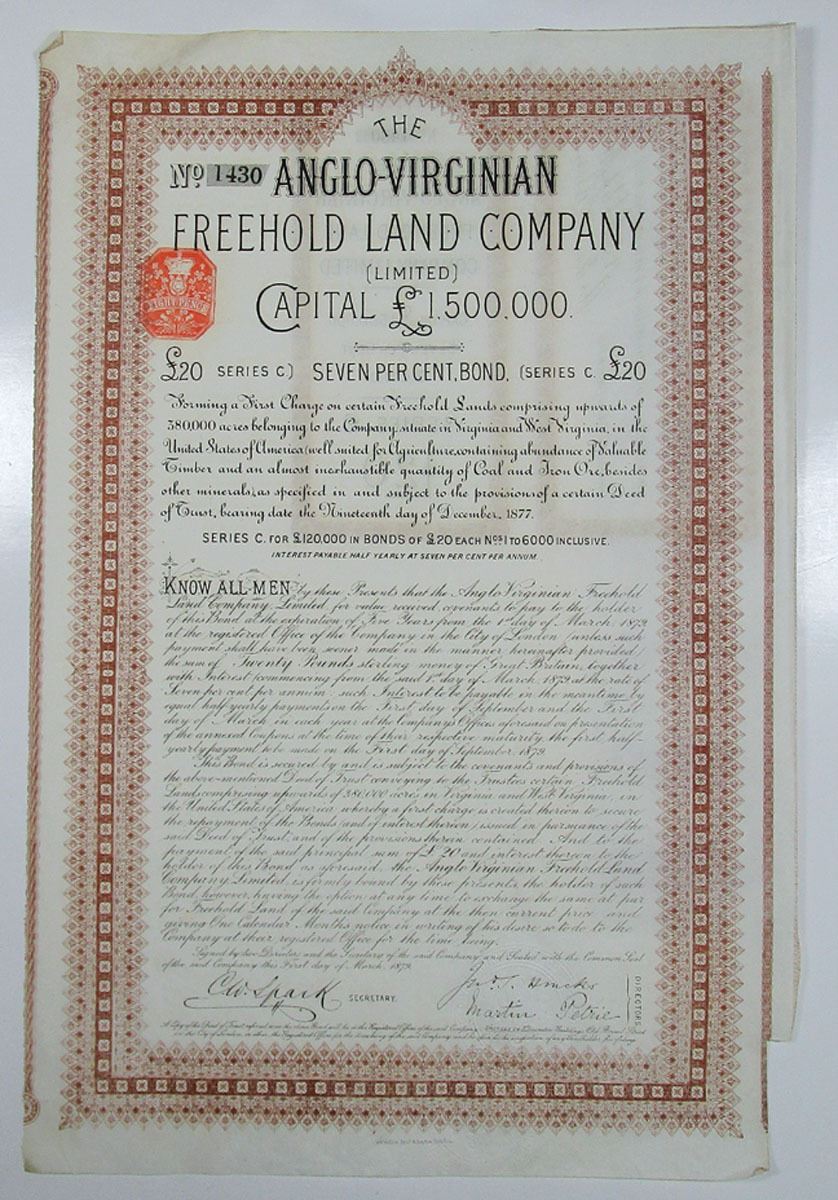 THE
No 1430 ANGLO-VIRGINIAN
FREEHOLD LAND COMPANY
(LIMITED)
CAPITAL £1,500,000.
EIGHT PENCE
£20 SERIES C.) SEVEN PER CENT, BOND, (SERIES C. £20
Forming a First Charge on certain Freehold Lands comprising upwards of
380,000 acres belonging to the Company, situate in Virginia and West Virginia, in the
United States of America (well suited for Agriculture, containing abundance of Valuable
Timber and an almost inexhaustible quantity of Coal and Iron Ore, besides
other minerals,) as specified in and subject to the provisions of a certain Deed
of Trust, bearing date the Nineteenth day of December, 1877.
SERIES C. FOR £120,000 IN BONDS OF £20 EACH Nos 1 TO 6000 INCLUSIVE.
INTEREST PAYABLE HALF YEARLY AT SEVEN PER CENT PER ANNUM.
KNOW ALL MEN by these Presents that the Anglo Virginian Freehold
Land Company, Limited, for value received covenants to pay to the holder
of this Bond at the expiration of Five Years from the 1st day of March 1879
at the registered Office of the Company in the City of London (unless such
payment shall have been sooner made in the manner hereinafter provided)
the sum of Twenty Pounds sterling money of Great Britain, together
with Interest (commencing from the said 1st day of March 1879 at the rate of
Seven per cent per annum: such Interest to be payable in the meantime by
equal half yearly payments on the First day of September and the First
day of March in each year at the Company's Offices aforesaid on presentation
of the annexed coupons at the time of their respective maturity the first half-
yearly payment to be made on the First day of September 1879.
This Bond is secured by and is subject to the covenants and provisions of
the above-mentioned Deed of Trust conveying to the Trustees certain Freehold
Lands comprising upwards of 380,000 acres in Virginia and West Virginia, in
the United States of America whereby a first charge is created thereon to secure
the repayment of the Bonds (and of interest thereon) issued in pursuance of the
said Deed of Trust, and of the provisions therein contained. And to the
payment of the said principal sum of £20 and interest thereon to the
holder of this Bond as aforesaid the Anglo Virginian Freehold Land
Company, Limited, is firmly bound by these presents, the holder of such
Bond, however, having the option at any time to exchange the same at par
for Freehold Land of the said Company at the then current price and
giving One Calendar Months notice in writing of his desire so to do to the
Company at their registered Office for the time being.
Signed by two Directors and the Secretary of the said Company and Sealed with the Common Seal
of the said Company this First day of March, 1879.
C.W. Spark SECRETARY.
Martin Petrie
DIRECTORS